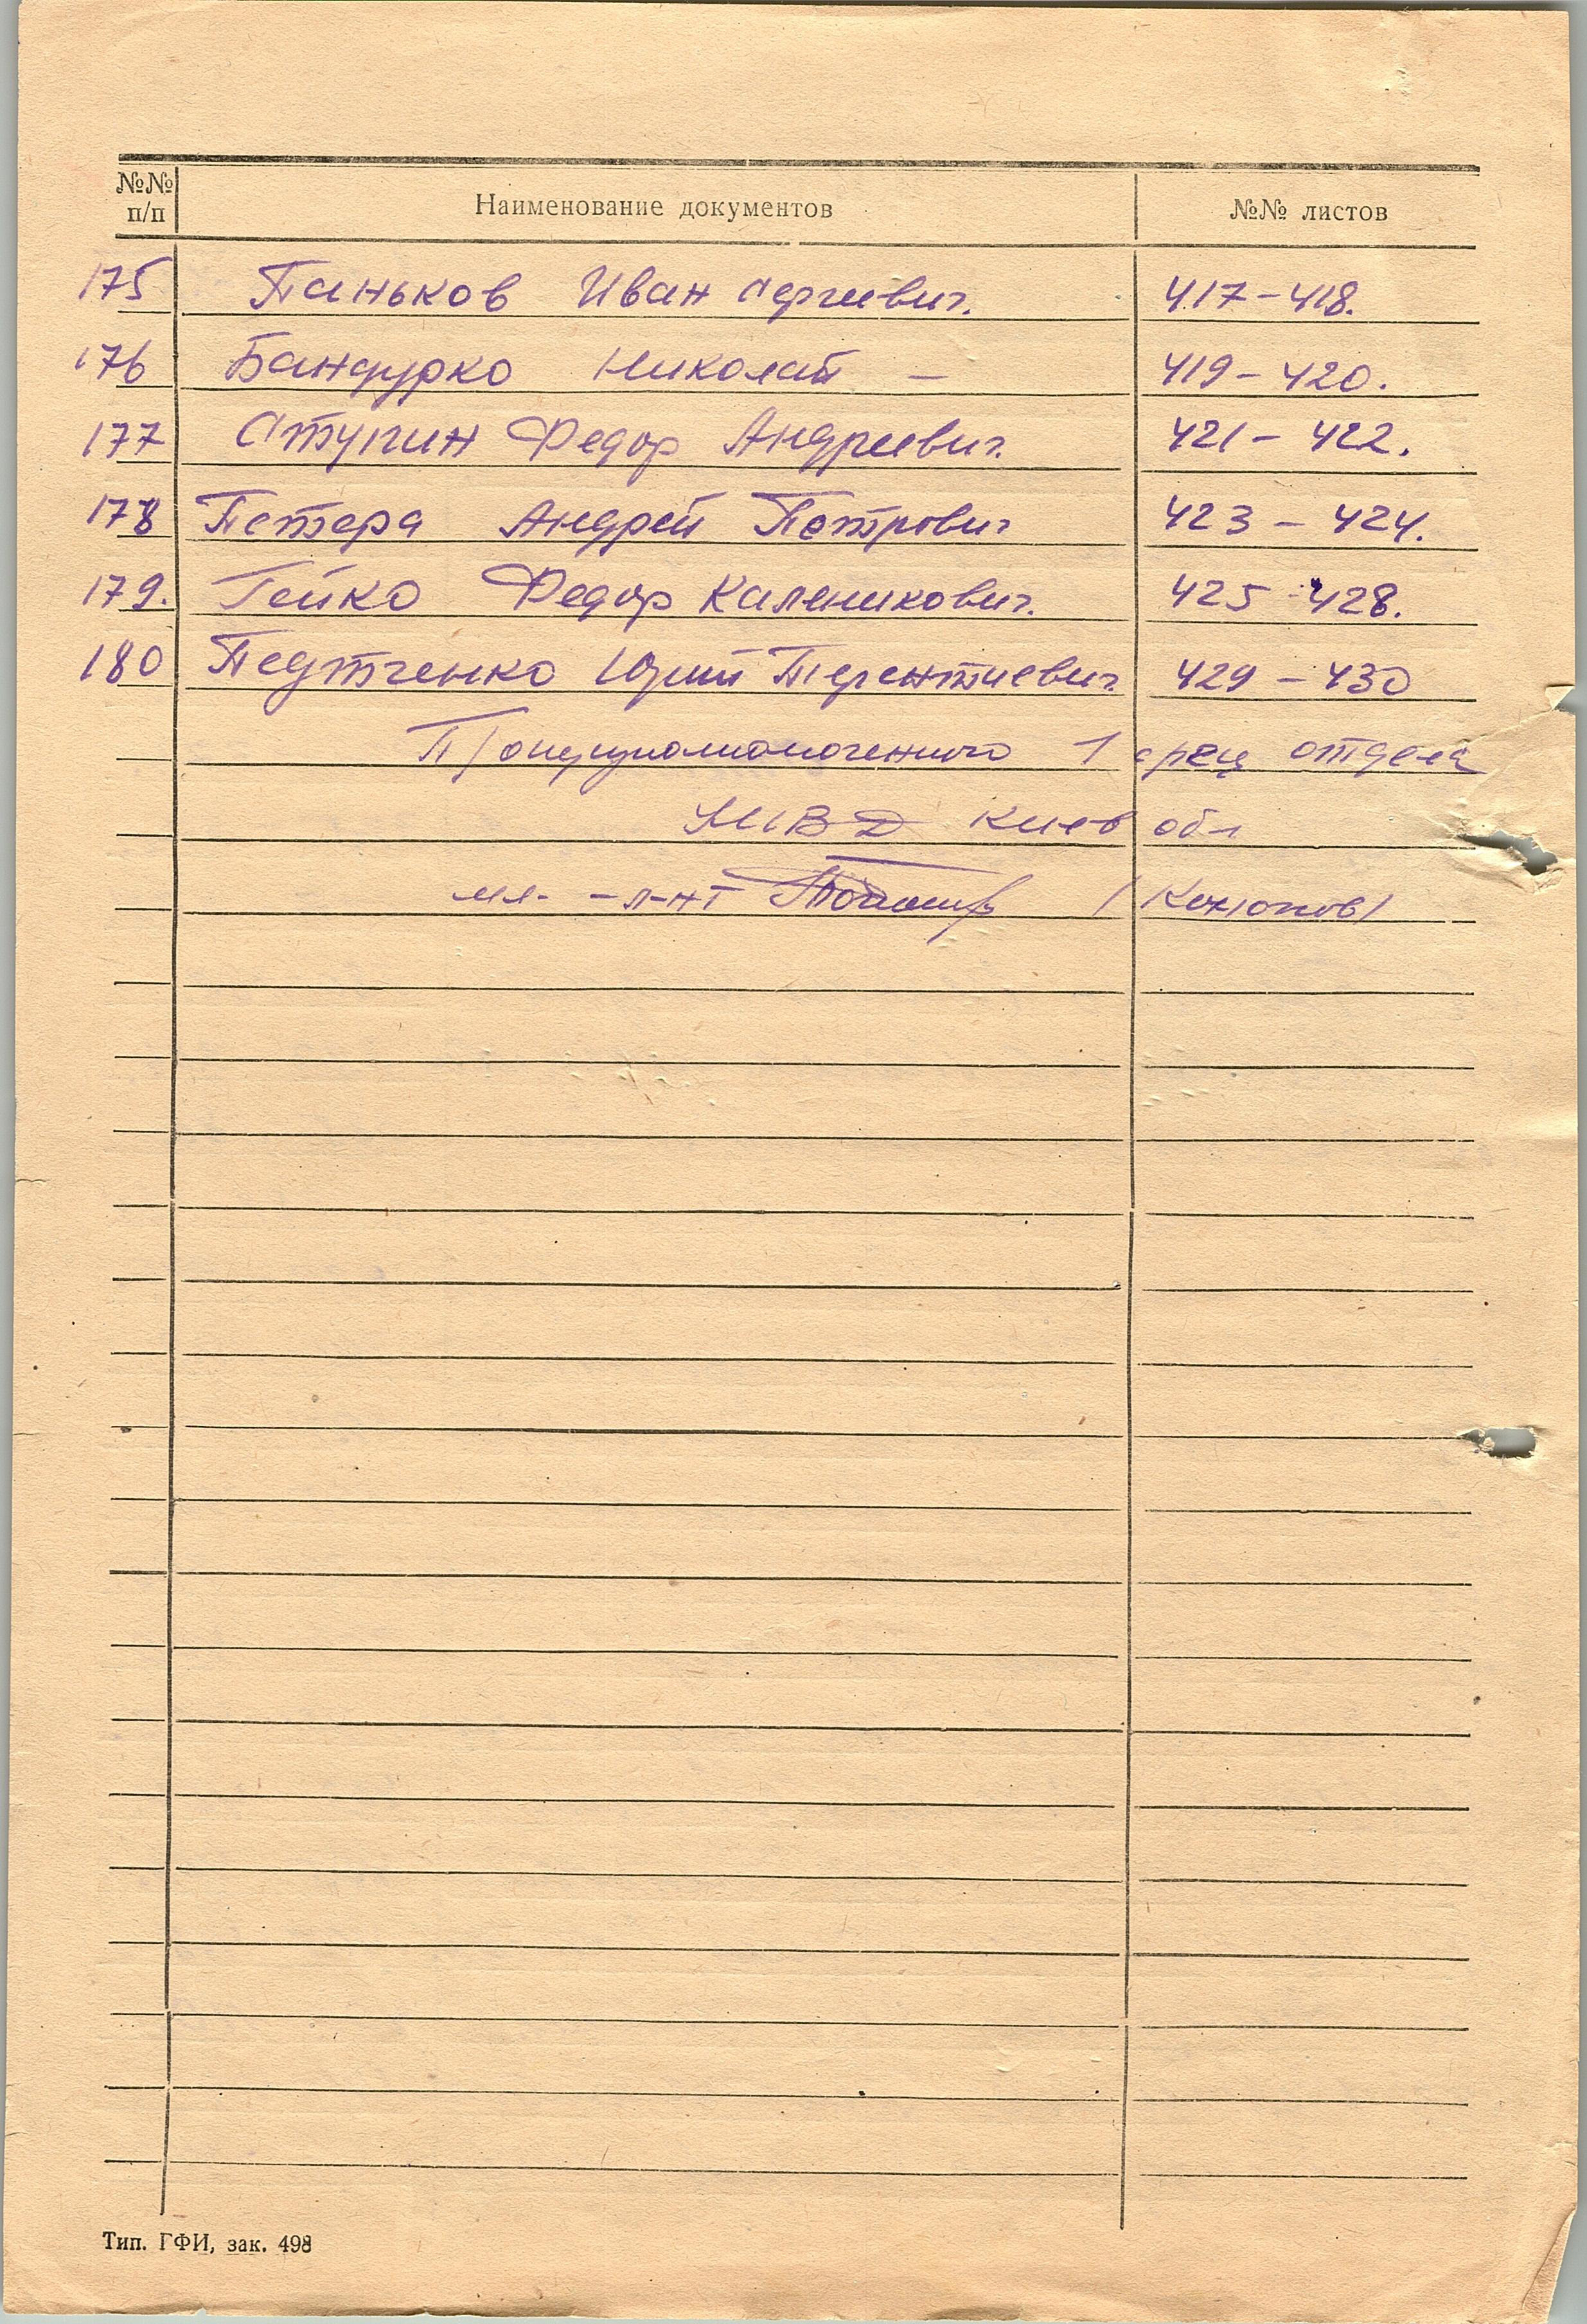 №№ п/п Наименование документов №№ листов
175 Паньков Иван Сергеевич. 417-418.
176 Бандурко Николай — 419-420.
177 Ступин Федор Андреевич. 421-422.
178 Петера Андрей Петрович 423-424.
179. Гейко Федор Каленикович. 425-428.
180 Педтченко Юрий Терентиевич 429-430
П/оперуполномоченного 1 спец отдела
МВД Киев обл
мл- -л-нт
Тип. ГФИ, зак. 498